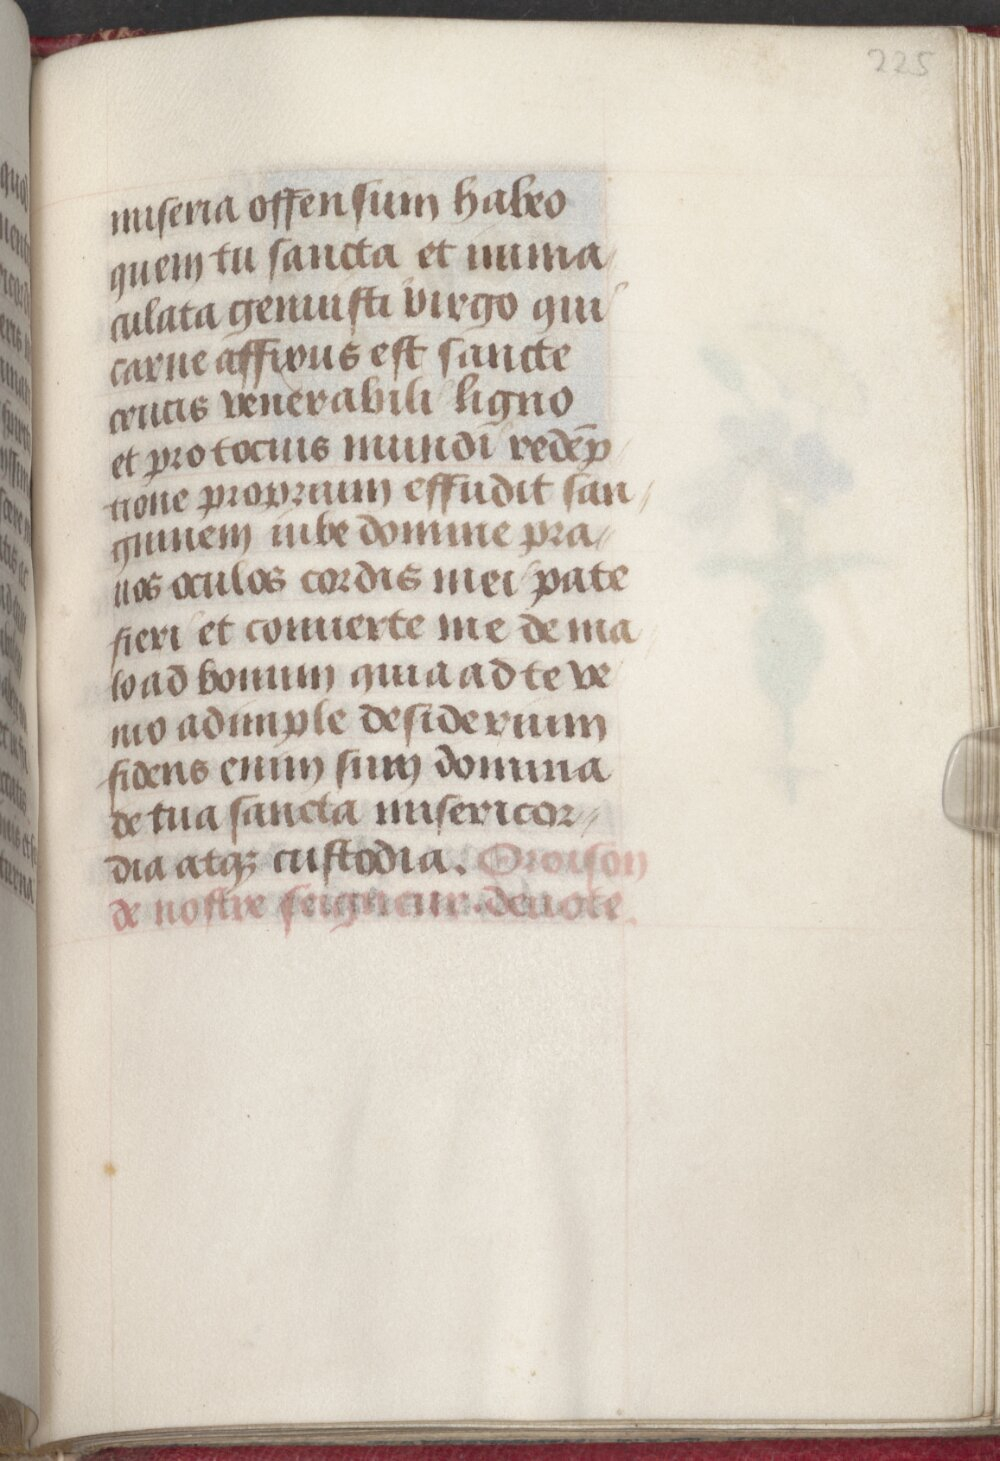 225
miseria offensum habeo
quem tu sancta et imma
culata genuisti virgo qui
carne affixus est sancte
crucis venerabili ligno
et pro tocius mundi redēp
tione proprium effudit san
guinem iube domine pra
nos oculos cordis mei pate
fieri et conuerte me de ma
lo ad bonum quia ad te ve
nio adimple desiderium
fidens enim sum domina
de tua sancta misericor
dia atqȝ custodia. Oroison
de nostre seigneur. deuote.